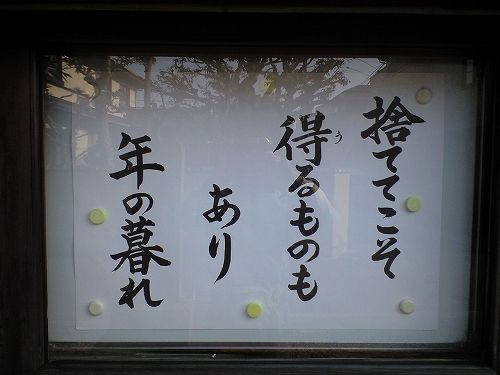 捨ててこそ
得るものも
う
あり
年の暮れ